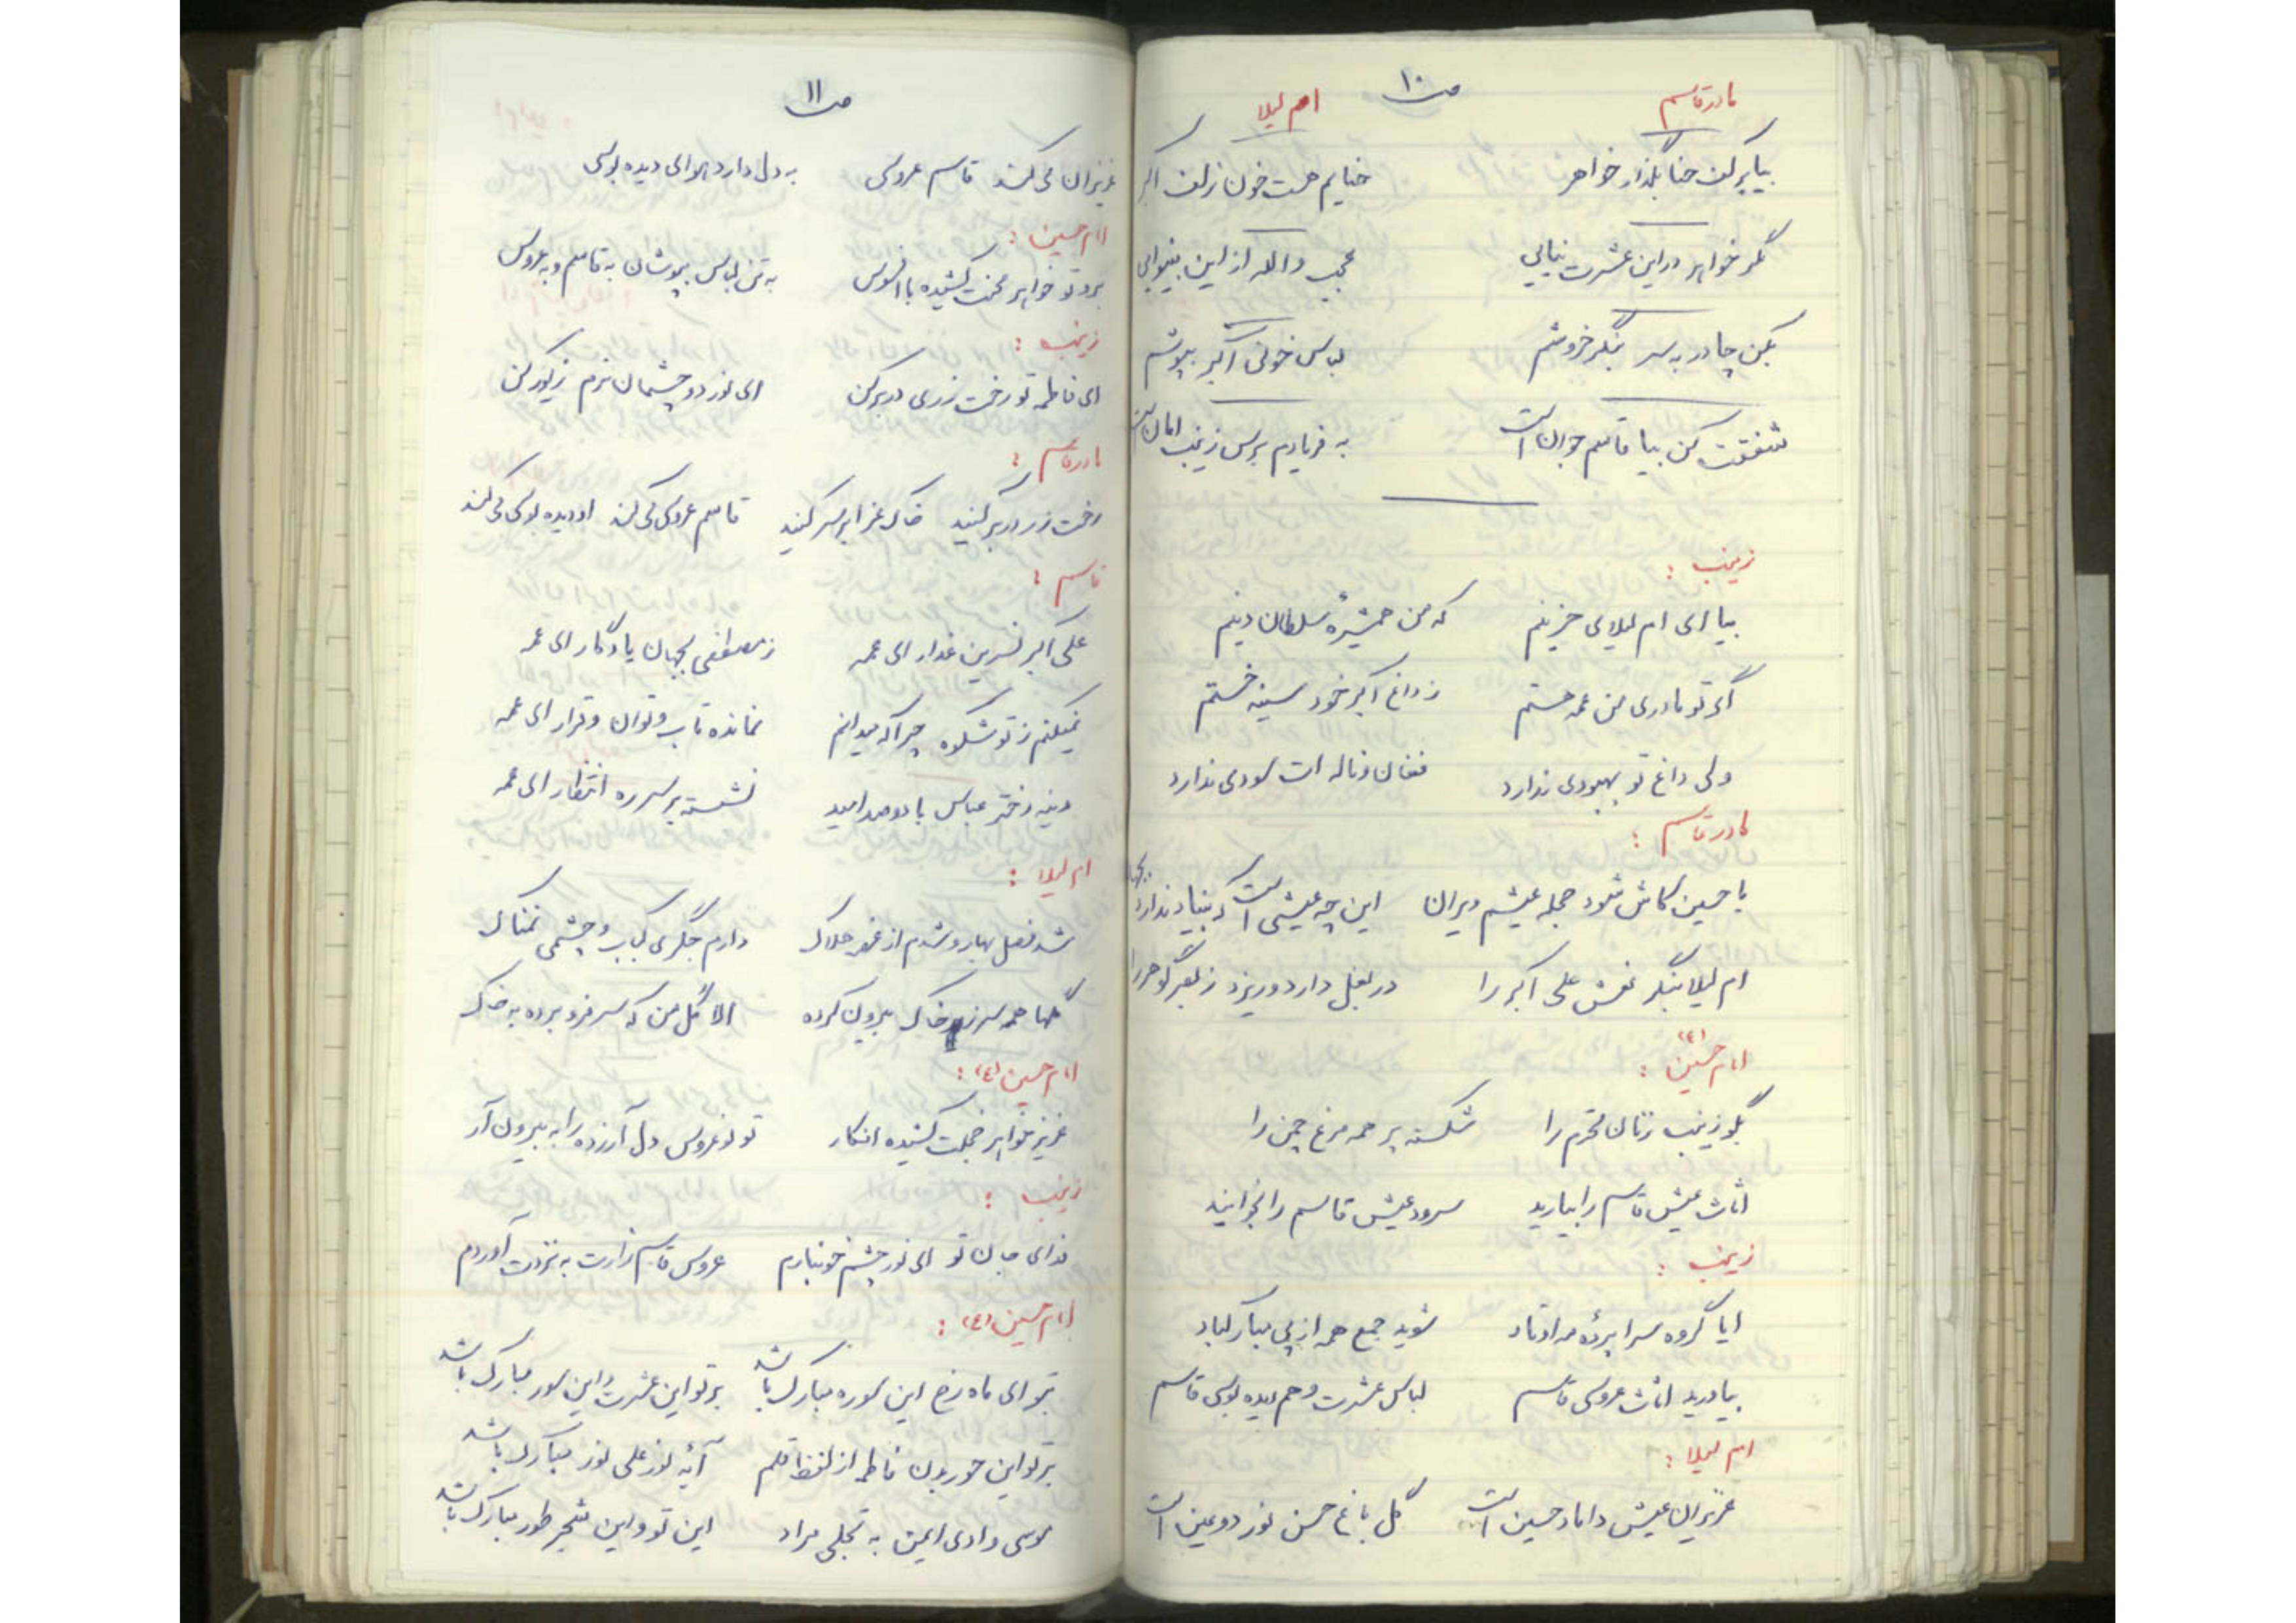 ص ۱۰
مادر قاسم ام لیلا
بیا بر کف حنا بگذار خواهر حنایم هست خون زلف اکبر
مگر خواهر در این عشرت نیایی عجب والله از این بینوایی
بکن چادر به سر بنگر خروشم لباس خونی اکبر بپوشم
شفقت کن بیا قاسم جوان است به فریادم برس زینب امان است
زینب :
بیا ای ام لیلای حزینم که من همشیره سلطان دینم
اگر تو مادری من عمه هستم ز داغ اکبر خود سینه خستم
ولی داغ تو بهبودی ندارد فغان و ناله ات سودی ندارد
مادر قاسم :
یا حسین کاش شود حجله عیشم ویران این چه عیشی است که بنیاد ندارد بجهان
ام لیلا بنگر نعش علی اکبر را در بغل دارد و ریزد ز بصر گوهر را
امام حسین (ع) :
بگو زینب زنان محترم را شکسته پر همه مرغ چمن را
اثاث عیش قاسم را بیارید سرود عیش قاسم را بخوانید
زینب :
ایا گروه سراپرده مه اوتاد شوید جمع همه از پی مبارکباد
بیاورید اثاث عروسی قاسم لباس عشرت و هم دیده بوسی قاسم
ام لیلا :
عزیزان عیش داماد حسین است گل باغ حسن نور دو عین است
ص ۱۱
عزیزان می کند قاسم عروسی به دل دارد هوای دیده بوسی
امام حسین :
برو تو خواهر محنت کشیده با افسوس به تن لباس بپوشان به قاسم و به عروس
زینب :
ای فاطمه تو رخت زری در بر کن ای نور دو چشمان ترم زیور کن
مادر قاسم :
رخت زر در بر کنید خاک عزا بر سر کنید قاسم عروسی می کند او دیده بوسی می کند
قاسم :
علی اکبر نسرین عذار ای عمه ز مصطفی بجهان یادگار ای عمه
نمیکنم ز تو شکوه چرا که میدانم نمانده تاب و توان و قرار ای عمه
دختر عباس با دو صد امید نشسته بر سر ره انتظار ای عمه
ام لیلا :
شد فصل بهار و شدم از غصه هلاک دارم جگری کباب و چشمی نمناک
گلها همه سر ز زیر خاک بیرون کرده الا گل من که سر فرو برده به خاک
امام حسین (ع) :
عزیز خواهر خجلت کشیده افکار تو نو عروس دل آزرده را به بیرون آر
زینب :
فدای جان تو ای نور چشم خونبارم عروس قاسم زارت به نزدت آوردم
امام حسین (ع) :
بتو ای ماه رخ این سوره مبارک باشد بر تو این عشرت و این سور مبارک باشد
بر تو این حور بدن فاطمه از لفظ قلم آیه نور علی نور مبارک باشد
موسی وادی ایمن به تجلی مراد این تو و این شجر طور مبارک باشد